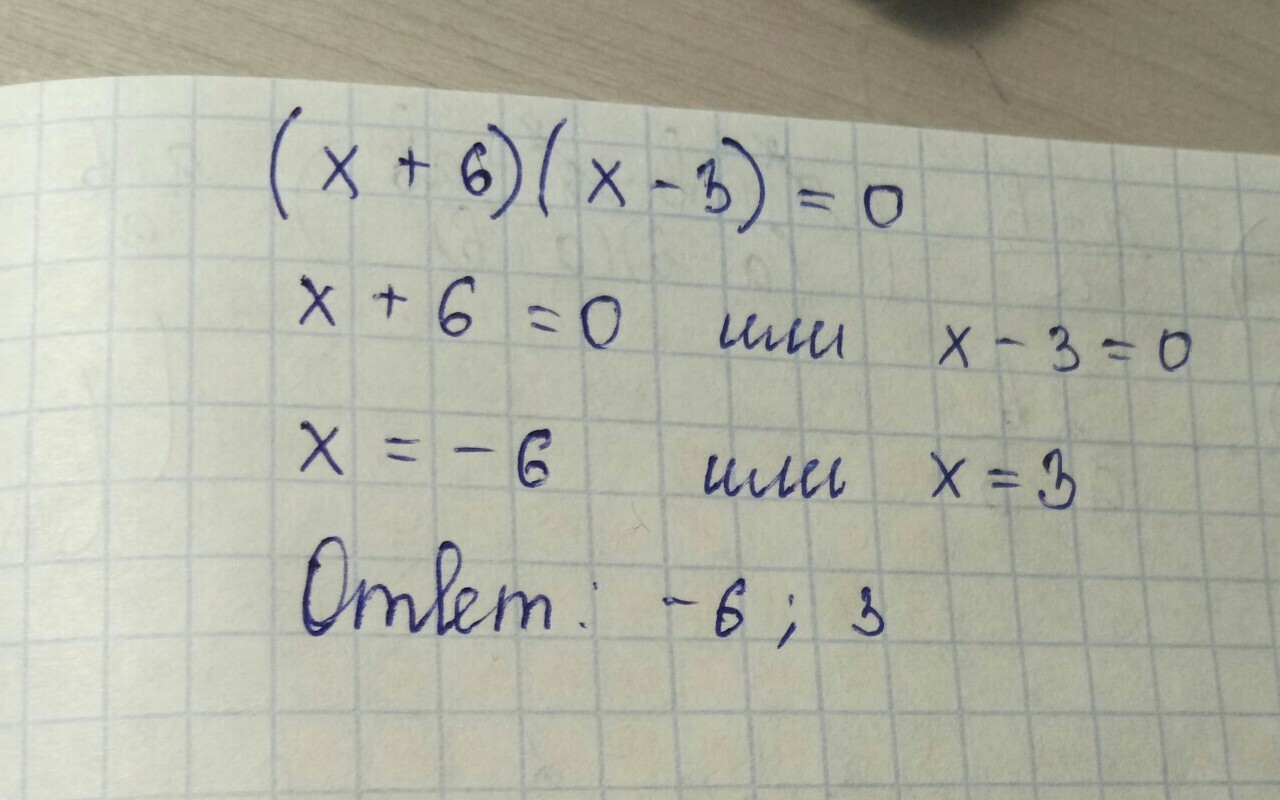 (x + 6)(x - 3) = 0
x + 6 = 0 или x - 3 = 0
x = - 6 или x = 3
Ответ: -6 ; 3